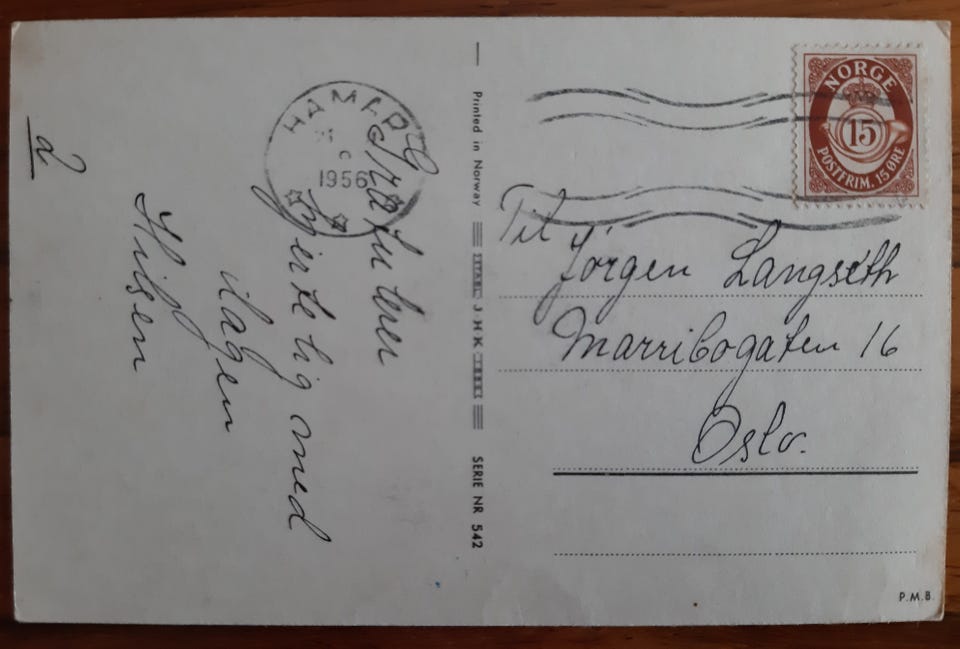 Gratulerer
hjertelig med
dagen
Hilsen
2
HAMAR
1956
Printed in Norway
J·H·K
SERIE NR 542
NORGE
15
POSTFRIM. 15 ØRE
Til
Jörgen Langseth
Marribogaten 16
Oslo.
P.M.B.